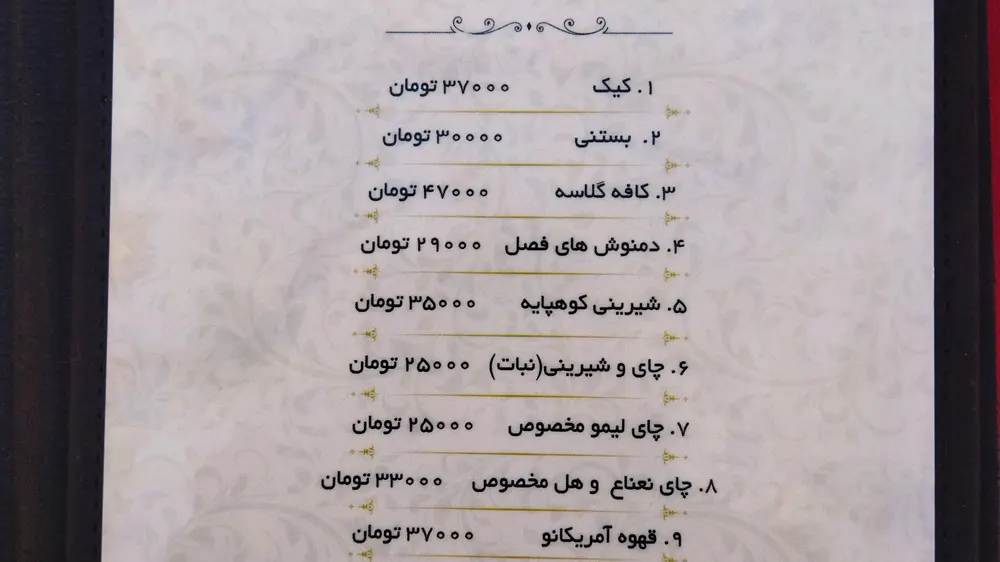 ۱. کیک ۳۷۰۰۰ تومان
۲. بستنی ۳۰۰۰۰ تومان
۳. کافه گلاسه ۴۷۰۰۰ تومان
۴. دمنوش های فصل ۲۹۰۰۰ تومان
۵. شیرینی کوهپایه ۳۵۰۰۰ تومان
۶. چای و شیرینی(نبات) ۲۵۰۰۰ تومان
۷. چای لیمو مخصوص ۲۵۰۰۰ تومان
۸. چای نعناع و هل مخصوص ۳۳۰۰۰ تومان
۹. قهوه آمریکانو ۳۷۰۰۰ تومان